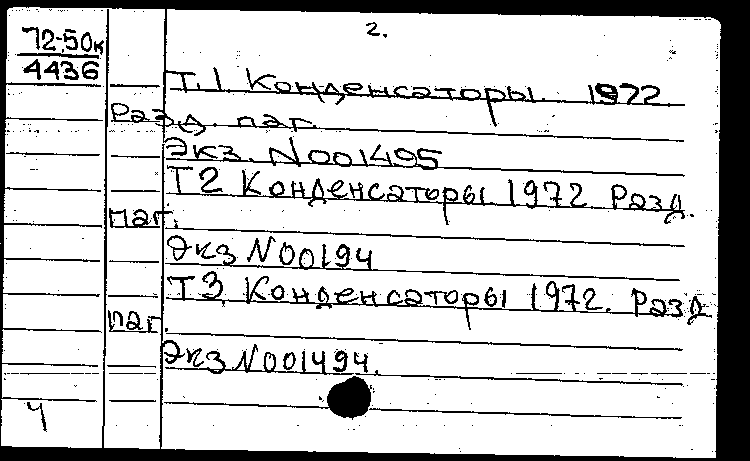 2.
72-50к
4436
Т.1 Конденсаторы. 1972
Разд. паг.
Экз. N001495
Т2 Конденсаторы 1972 Разд.
паг.
Экз N00194
Т3 Конденсаторы 1972. Разд
паг.
Экз N001494.
Ч